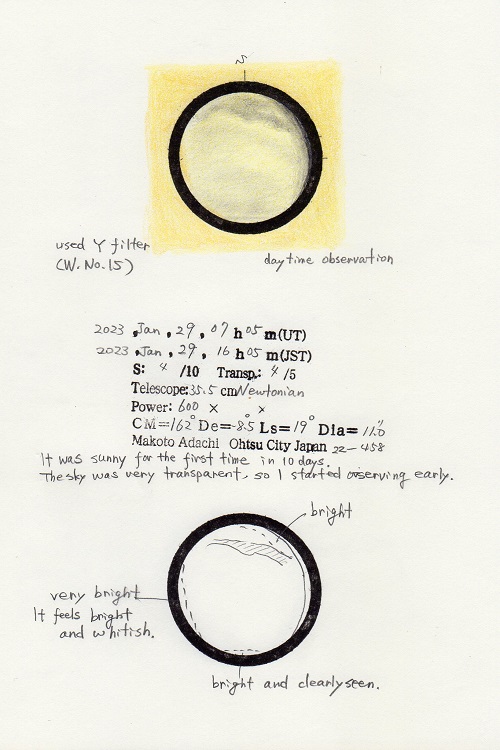 S
used Y filter
(W. No. 15)
daytime observation
2023, Jan, 29, 07 h 05 m (UT)
2023, Jan, 29, 16 h 05 m (JST)
S: 4 /10 Transp.: 4 /5
Telescope: 35.5 cm Newtonian
Power: 600 × ×
CM=162° De=-8.5° Ls=19° Dia= 11.0"
Makoto Adachi Ohtsu City Japan 22-458
It was sunny for the first time in 10 days.
The sky was very transparent, so I started overving early.
bright
very bright
It feels bright
and whitish.
bright and clearly seen.